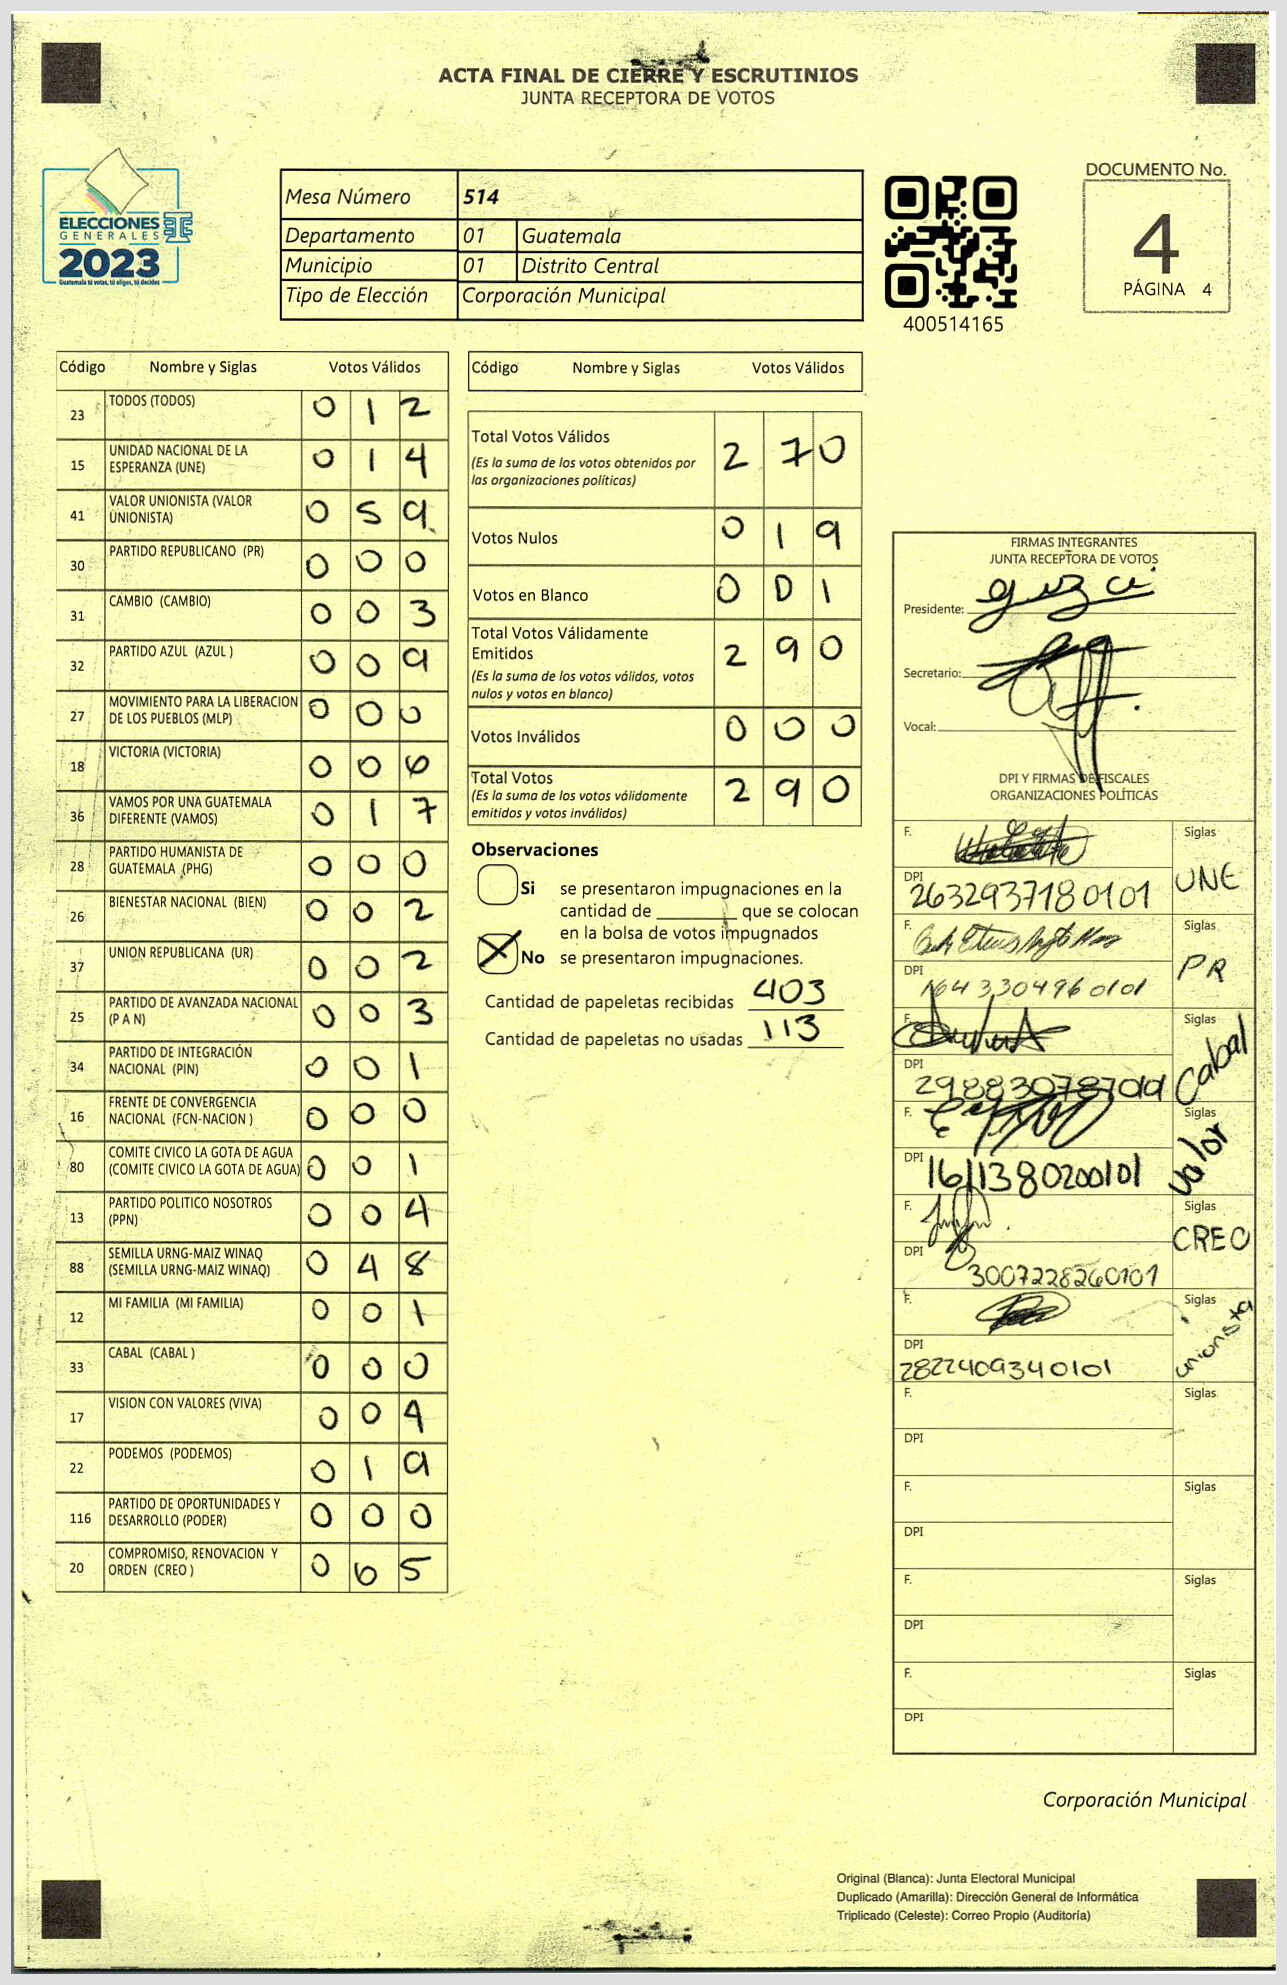 ACTA FINAL DE CIERRE Y ESCRUTINIOS
JUNTA RECEPTORA DE VOTOS
ELECCIONES
GENERALES
2023
Guatemala tú votas, tú eliges, tú decides
Mesa Número 514
Departamento 01 Guatemala
Municipio 01 Distrito Central
Tipo de Elección Corporación Municipal
400514165
DOCUMENTO No.
4
PÁGINA 4
Código Nombre y Siglas Votos Válidos
23 TODOS (TODOS) 0 1 2
15 UNIDAD NACIONAL DE LA
ESPERANZA (UNE) 0 1 4
41 VALOR UNIONISTA (VALOR
UNIONISTA) 0 5 9
30 PARTIDO REPUBLICANO (PR) 0 0 0
31 CAMBIO (CAMBIO) 0 0 3
32 PARTIDO AZUL (AZUL ) 0 0 9
27 MOVIMIENTO PARA LA LIBERACION
DE LOS PUEBLOS (MLP) 0 0 0
18 VICTORIA (VICTORIA) 0 0 6
36 VAMOS POR UNA GUATEMALA
DIFERENTE (VAMOS) 0 1 7
28 PARTIDO HUMANISTA DE
GUATEMALA (PHG) 0 0 0
26 BIENESTAR NACIONAL (BIEN) 0 0 2
37 UNION REPUBLICANA (UR) 0 0 2
25 PARTIDO DE AVANZADA NACIONAL
(P A N) 0 0 3
34 PARTIDO DE INTEGRACIÓN
NACIONAL (PIN) 0 0 1
16 FRENTE DE CONVERGENCIA
NACIONAL (FCN-NACION ) 0 0 0
80 COMITE CIVICO LA GOTA DE AGUA
(COMITE CIVICO LA GOTA DE AGUA) 0 0 1
13 PARTIDO POLITICO NOSOTROS
(PPN) 0 0 4
88 SEMILLA URNG-MAIZ WINAQ
(SEMILLA URNG-MAIZ WINAQ) 0 4 8
12 MI FAMILIA (MI FAMILIA) 0 0 1
33 CABAL (CABAL ) 0 0 0
17 VISION CON VALORES (VIVA) 0 0 4
22 PODEMOS (PODEMOS) 0 1 9
116 PARTIDO DE OPORTUNIDADES Y
DESARROLLO (PODER) 0 0 0
20 COMPROMISO, RENOVACION Y
ORDEN (CREO ) 0 6 5
Código Nombre y Siglas Votos Válidos
Total Votos Válidos 2 7 0
(Es la suma de los votos obtenidos por
las organizaciones políticas)
Votos Nulos 0 1 9
Votos en Blanco 0 0 1
Total Votos Válidamente
Emitidos 2 9 0
(Es la suma de los votos válidos, votos
nulos y votos en blanco)
Votos Inválidos 0 0 0
Total Votos 2 9 0
(Es la suma de los votos válidamente
emitidos y votos inválidos)
Observaciones
Si se presentaron impugnaciones en la
cantidad de ________ que se colocan
en la bolsa de votos impugnados
No se presentaron impugnaciones.
Cantidad de papeletas recibidas 403
Cantidad de papeletas no usadas 113
FIRMAS INTEGRANTES
JUNTA RECEPTORA DE VOTOS
Presidente:
Secretario:
Vocal:
DPI Y FIRMAS DE FISCALES
ORGANIZACIONES POLÍTICAS
F. Siglas
DPI UNE
2632937180101
F. Siglas
DPI PR
1643304960101
F. Siglas
DPI Cabal
F. Siglas
DPI 1611380200101 Valor
F. Siglas
CREO
DPI
3007228260101
F. Siglas
unionista
DPI
2822409340101
F. Siglas
DPI
F. Siglas
DPI
F. Siglas
DPI
F. Siglas
DPI
Corporación Municipal
Original (Blanca): Junta Electoral Municipal
Duplicado (Amarilla): Dirección General de Informática
Triplicado (Celeste): Correo Propio (Auditoría)